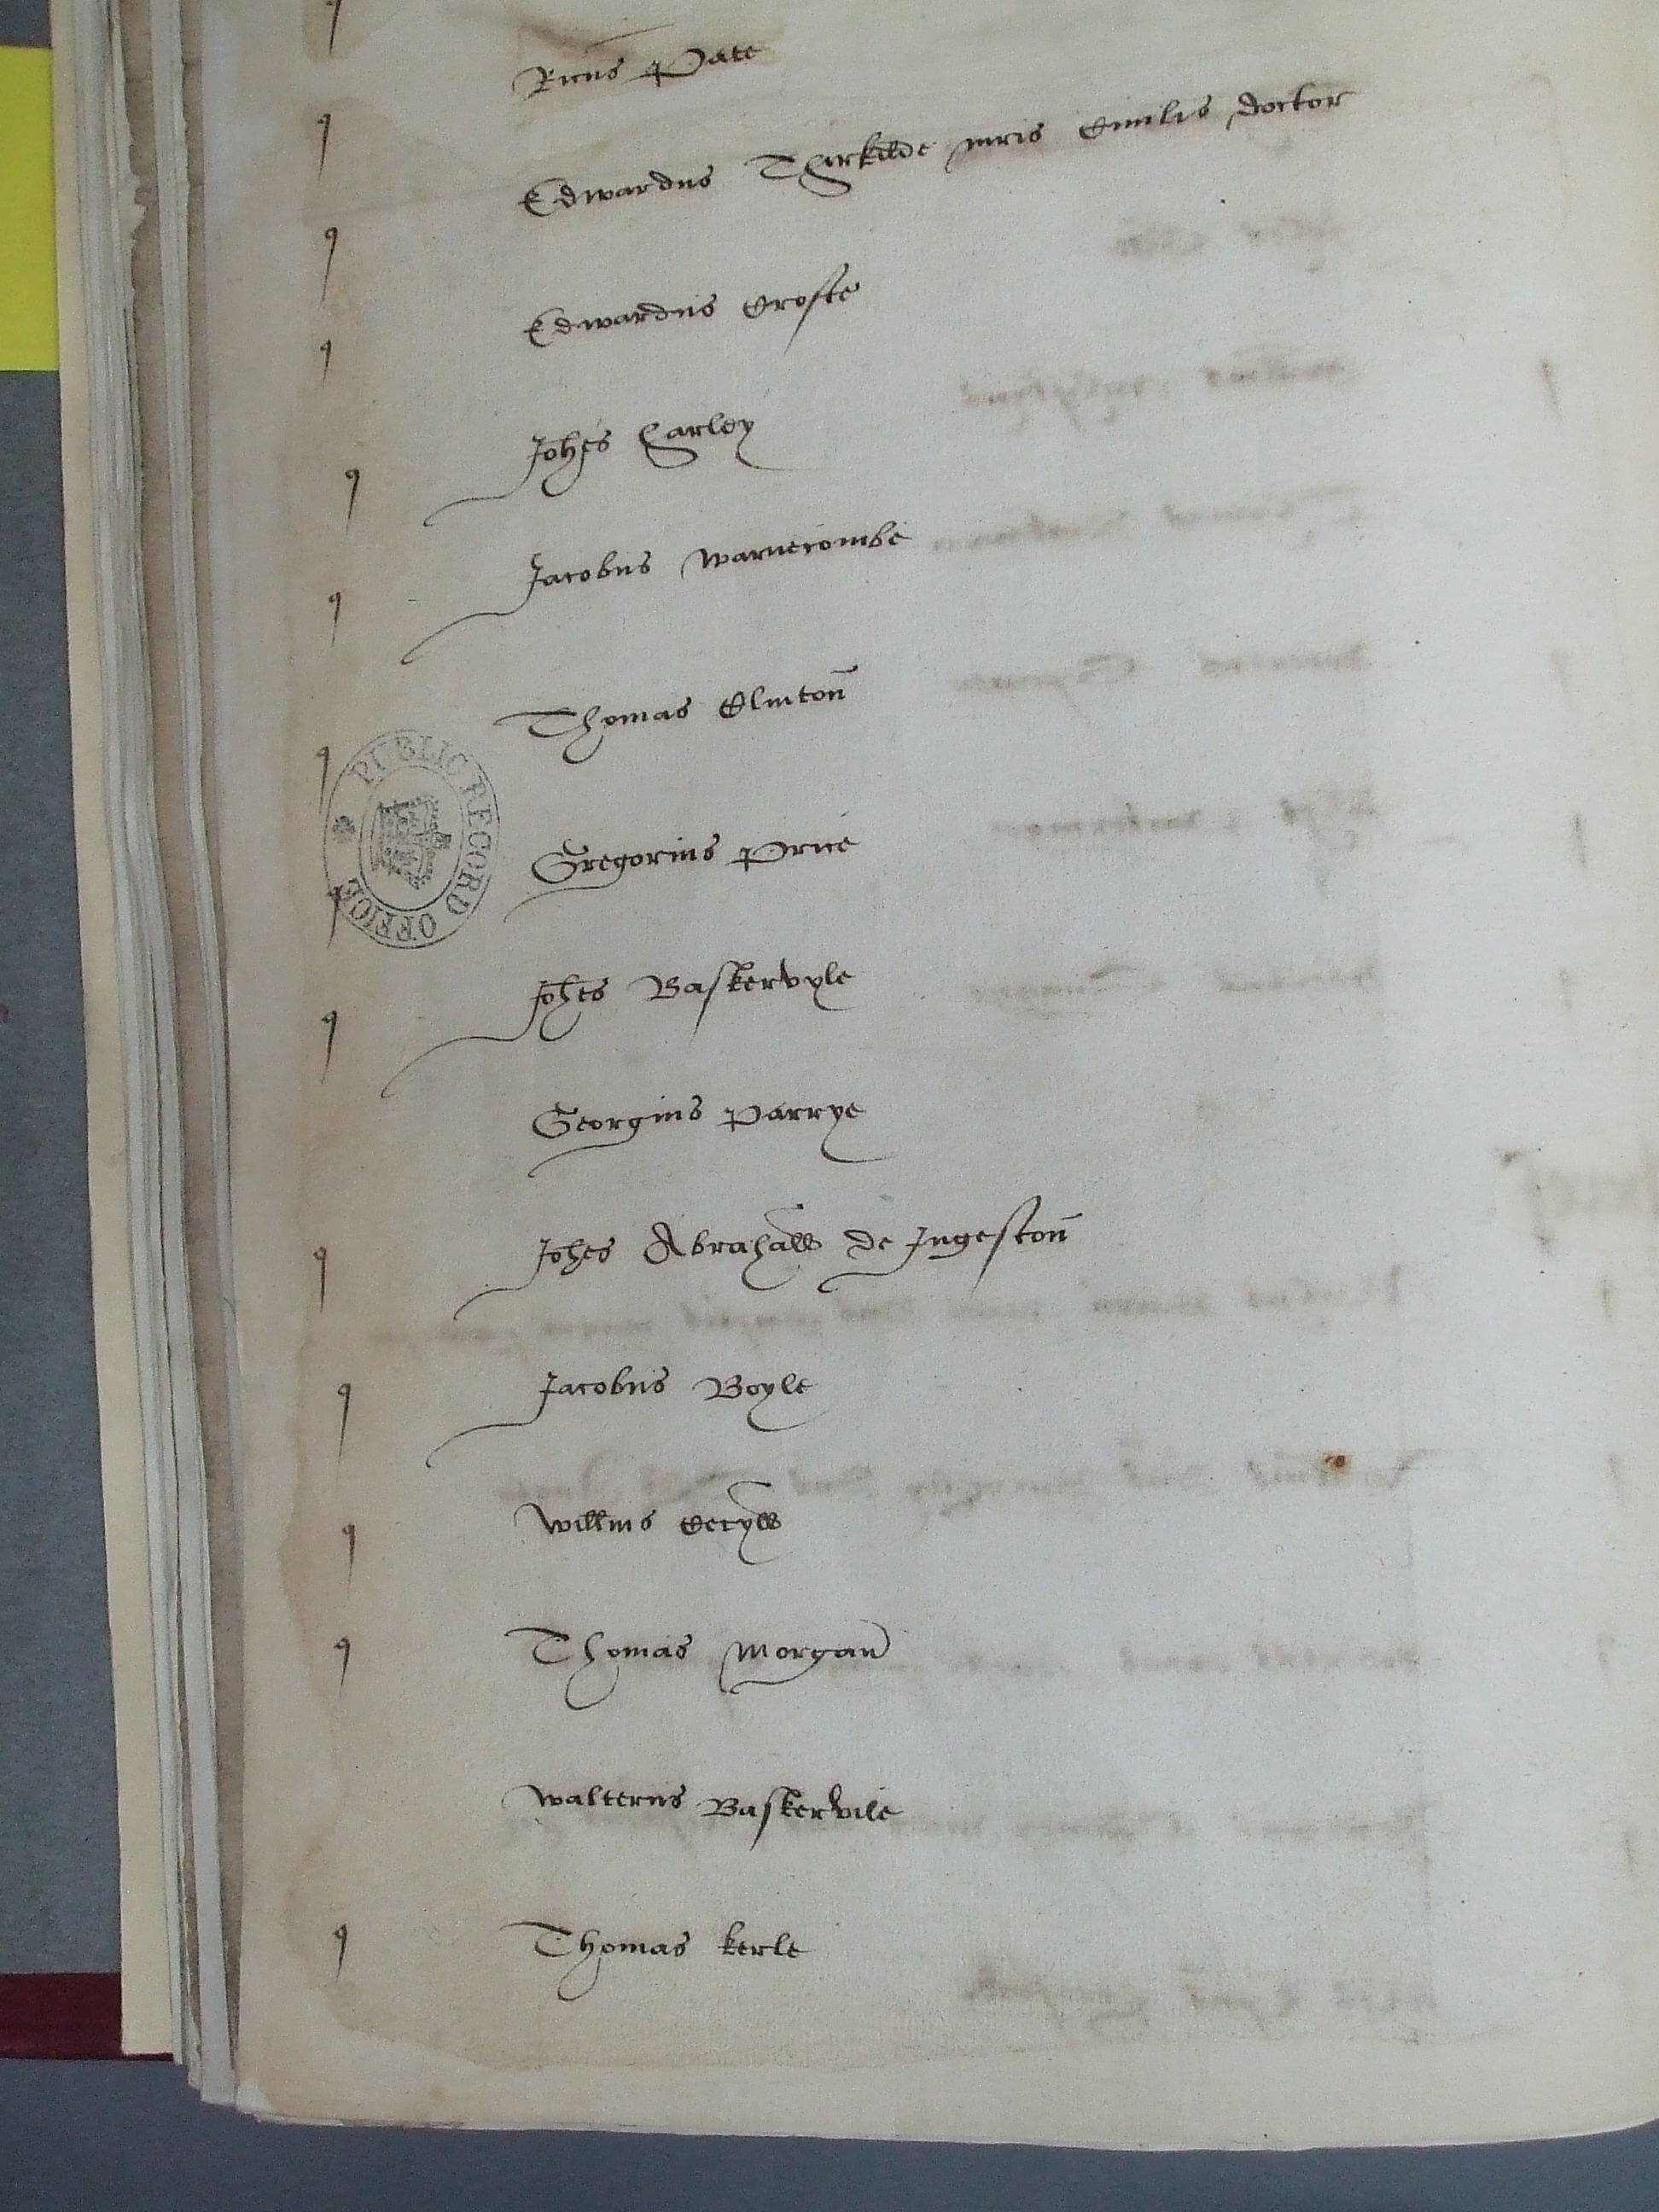 Ricus Pate
Edwardus Tharkilde iuris Civilis doctor
Edwardus Crofte
Johes Harley
Jacobus Warnecombe
Thomas Clinton
Gregorius Price
Johes Baskervyle
Georgius Parrye
Johes Abrahall de Ingeston
Jacobus Boyle
Willms Cecyll
Thomas Morgan
Walterus Baskervile
Thomas Kerle
PUBLIC RECORD OFFICE